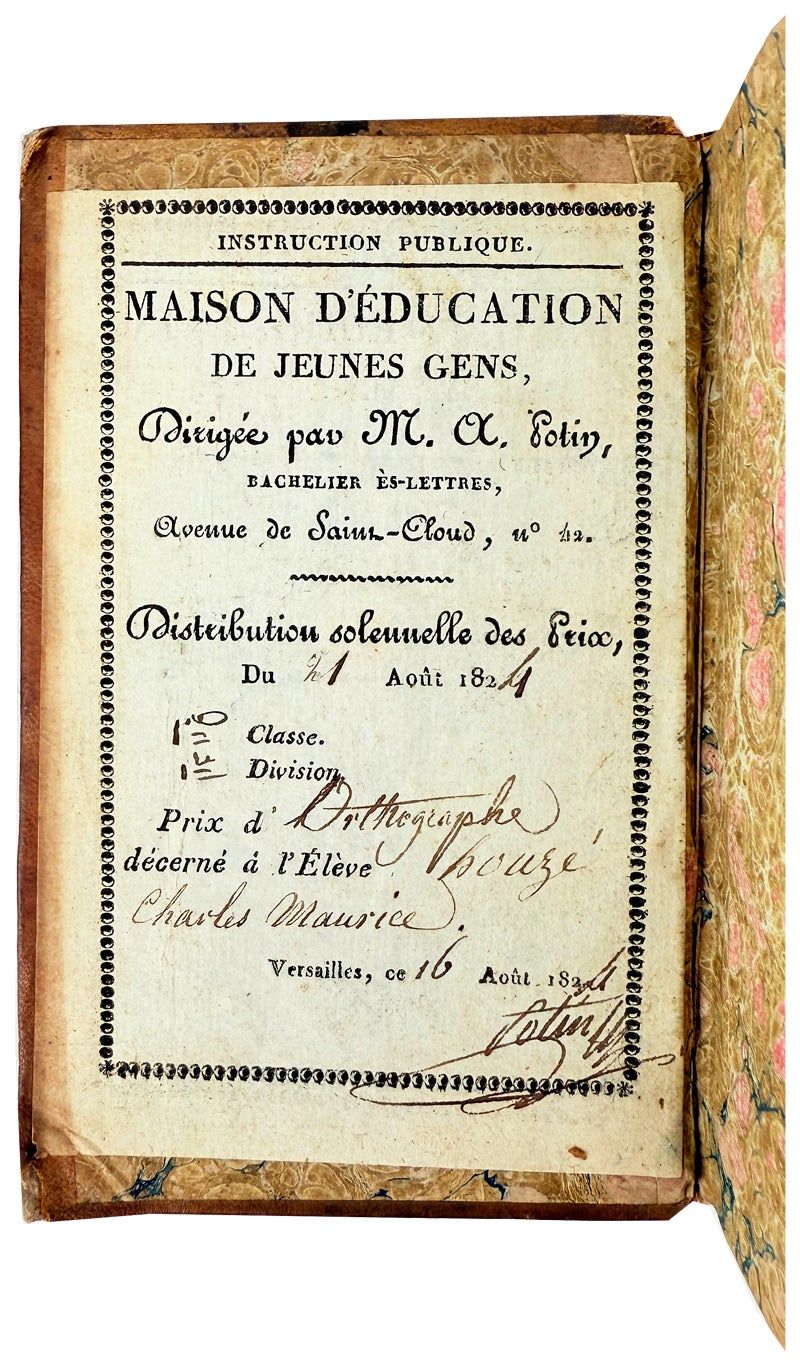 INSTRUCTION PUBLIQUE.
MAISON D'ÉDUCATION
DE JEUNES GENS,
Dirigée par M. A. Potin,
BACHELIER ÈS-LETTRES,
Avenue de Saint-Cloud, nº 42.
Distribution solennelle des Prix,
Du 21 Août 1824
Classe.
1re Division,
Prix d' Orthographe
décerné á l'Élève houzé,
Charles Maurice.
Versailles, ce 16 Août 1824
Potin